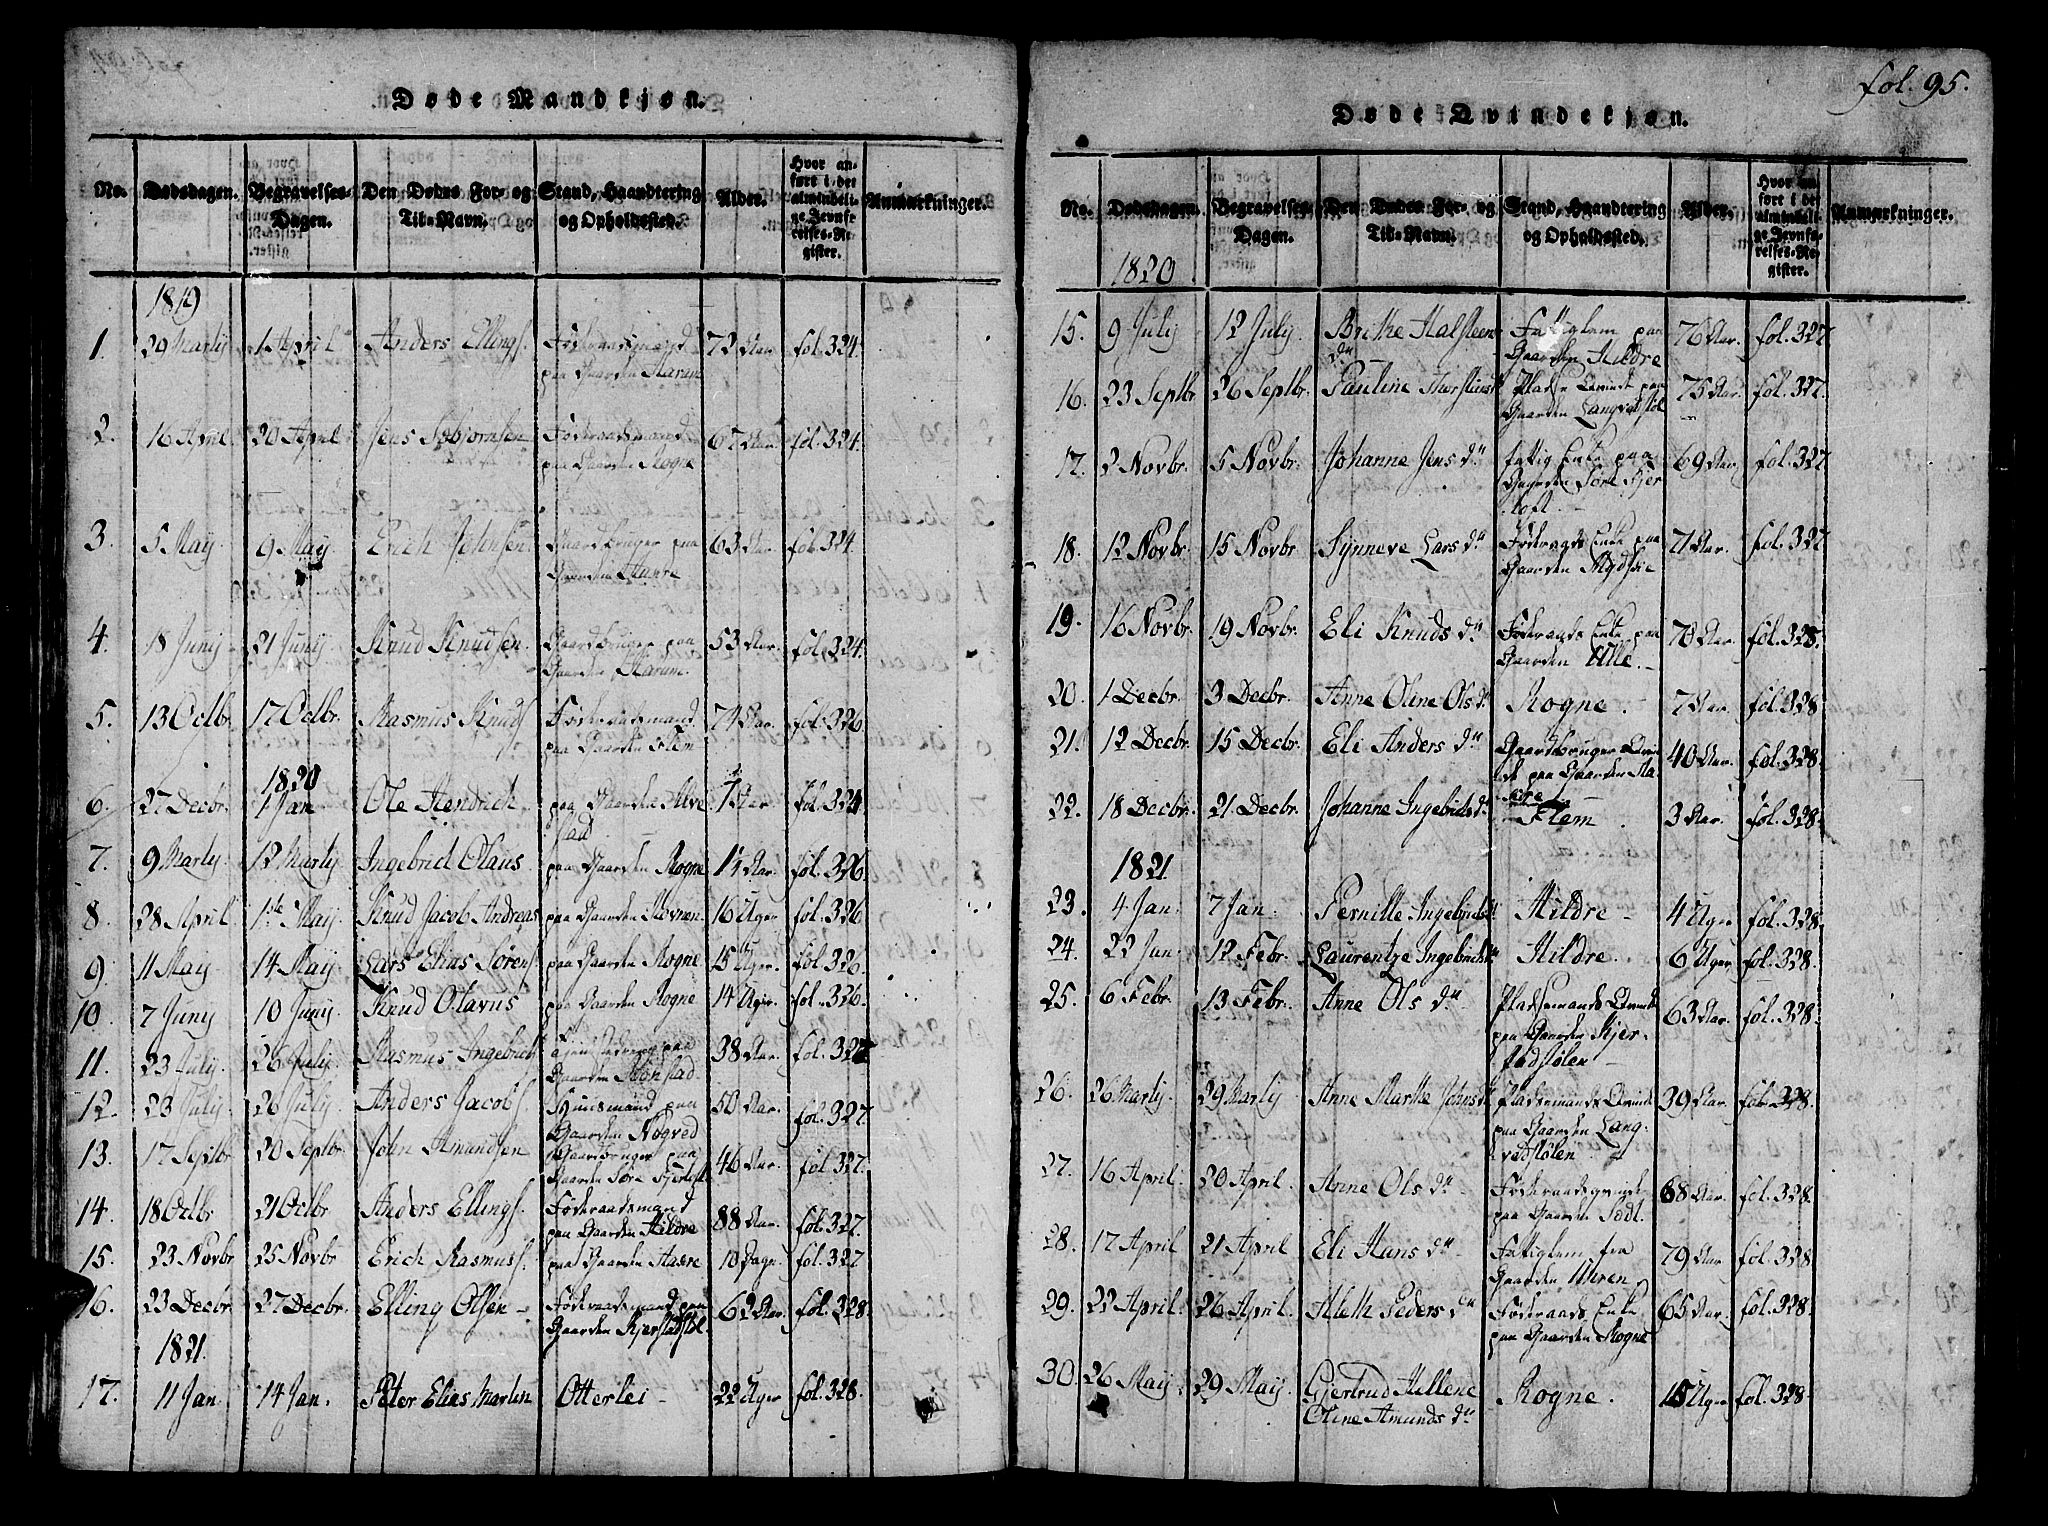 Døde Mandkjøn.
No. Dødsdagen. Begravelses-Dagen. Den Dødes For- og Til-Navn. Stand, Haandtering og Opholdssted. Alder. Hvor anført i det almindelige Jevnførelses-Register. Anmærkninger.
1819
1. 29 Martij 1 April Anders Ellings. Føderaadsmand 72 Aar fol. 324.
paa Gaarden Haram
2. 16 April. 20 April Jens Føderaadsmand 67 Aar fol. 324.
paa Gaarden Rogne
3. 5 May 9 May Erich Johnsen Gaardbruger paa 63 Aar fol. 324.
Gaarden
4. 18 Junij 21 Junij Knud Knudsen. Gaardbruger paa 53 Aar. fol. 324.
Gaarden Haram.
5. 13 Octbr. 17 Octbr. Rasmus Knuds. Føderaadsmand 74 Aar. fol. 326
paa Gaarden Flem
1820
6. 27 Decbr. 1 Jan Ole Hendrich paa Gaarden Alve 1 Aar fol. 324
stad
7. 9 Martij. 12 Martij Ingebrich Olaus paa Gaarden Rogne 14 Aar. fol. 326.
8. 28 April 1ste May Knud Jacob Andreas paa Gaarden 16 Uger fol. 326
9. 11 May 14 May Lars Elias Sørens. paa Gaarden Rogne 15 Uger. fol. 326.
10. 7 Junij 10 Junij Knud Olavus paa Gaarden Rogne 14 Uger. fol. 326.
11. 23 Julij. 26 Julij. Rasmus Ingebrichs. paa 38 Aar. fol. 327
Gaarden
12. 23 Julij 26 Julij. Anders Jacobs. Huusmand paa 50 Aar. fol. 327.
Gaarden Nogved
13. 17 Septbr 20 Septbr. John Amundsen Gaardbruger paa 46 Aar. fol 327.
Gaarden Søre Fjertoft
14. 18 Octbr 21 Octbr Anders Ellings. Føderaadsmand 88 Aar. fol. 327.
paa Gaarden Hildre
15. 23 Novbr 25 Novbr Erich Rasmuss. paa Gaarden 10 Dage. fol. 327
16. 23 Decbr. 27 Decbr. Elling Olsen Føderaadsmand paa 62 Aar. fol. 328.
Gaarden Kjerstadstøl.
1821.
17. 11 Jan. 14 Jan. Peter Elias Martin Otterlei 22 Uger fol. 328.
fol. 95.
Døde Qvindekjøn.
No. Dødsdagen. Begravelses-Dagen. Den Dødes For- og Til-Navn. Stand, Haandtering og Opholdssted. Alder. Hvor anført i det almindelige Jevnførelses-Register. Anmærkninger.
1820
15. 9 July 12 July Brithe Halsteen Fattiglem paa 76 Aar. fol. 327
dtr Gaarden Hildre
16. 23 Septbr. 26 Septbr. Pauline 75 Aar. fol. 327.
Gaarden Langvedstøl
17. 2 Novbr. 5 Novbr. Johanne Jens dtr fattig Enke paa 69 Aar. fol. 327
Gaarden Søre Fjer
toft.
18. 12 Novbr. 15 Novbr. Synneve Lars dtr Føderaads Enke paa 71 Aar. fol. 327
Gaarden
19. 16 Novbr. 19 Novbr. Eli Knuds dtr Føderaads Enke paa 78 Aar. fol. 328.
Gaarden Ulle.
20. 1 Decbr. 3 Decbr. Anne Oline Ols dtr Rogne. 7 Aar. fol. 328
21. 12 Decbr. 15 Decbr. Eli Anders dtr Gaardbruger Qvin 40 Aar. fol. 328.
de paa Gaarden
22. 18 Decbr. 21. Decbr. Johanne Ingebrichs dtr Flem. 3 Aar. fol. 328.
1821
23. 4 Jan. 7 Jan. Pernille Ingebrichs dtr Hildre 4 Uger fol. 328.
24. 22 Jan. 12 Febr. Laurentze Ingebrichs dtr Hildre. 6 Uger fol. 328.
25. 6 Febr. 13 Febr. Anne Ols dtr Pladsemands Qvinde 63 Aar. fol. 328.
paa Gaarden Kjer-
stadstølen
26. 26 Martij. 29 Martij Anne Marthe Johns dtr Pladsemands Qvinde 39 Aar fol. 328.
paa Gaarden Lang-
vedstølen
27. 16 April. 20 April. Anne Ols dtr 68 Aar. fol. 328.
paa Gaarden
28. 17 April 21 April Eli Hans dtr Fattiglem fra 79 Aar fol. 328
Gaarden Uren
29. 22 April. 26 April. Aleth Peders dtr Føderaads Enke 65 Aar. fol. 328.
paa Gaarden Rogne
30. 26 May 29 May. Gjertrud Hellene Rogne. 15 Uger fol. 328.
Oline Amunds dtr